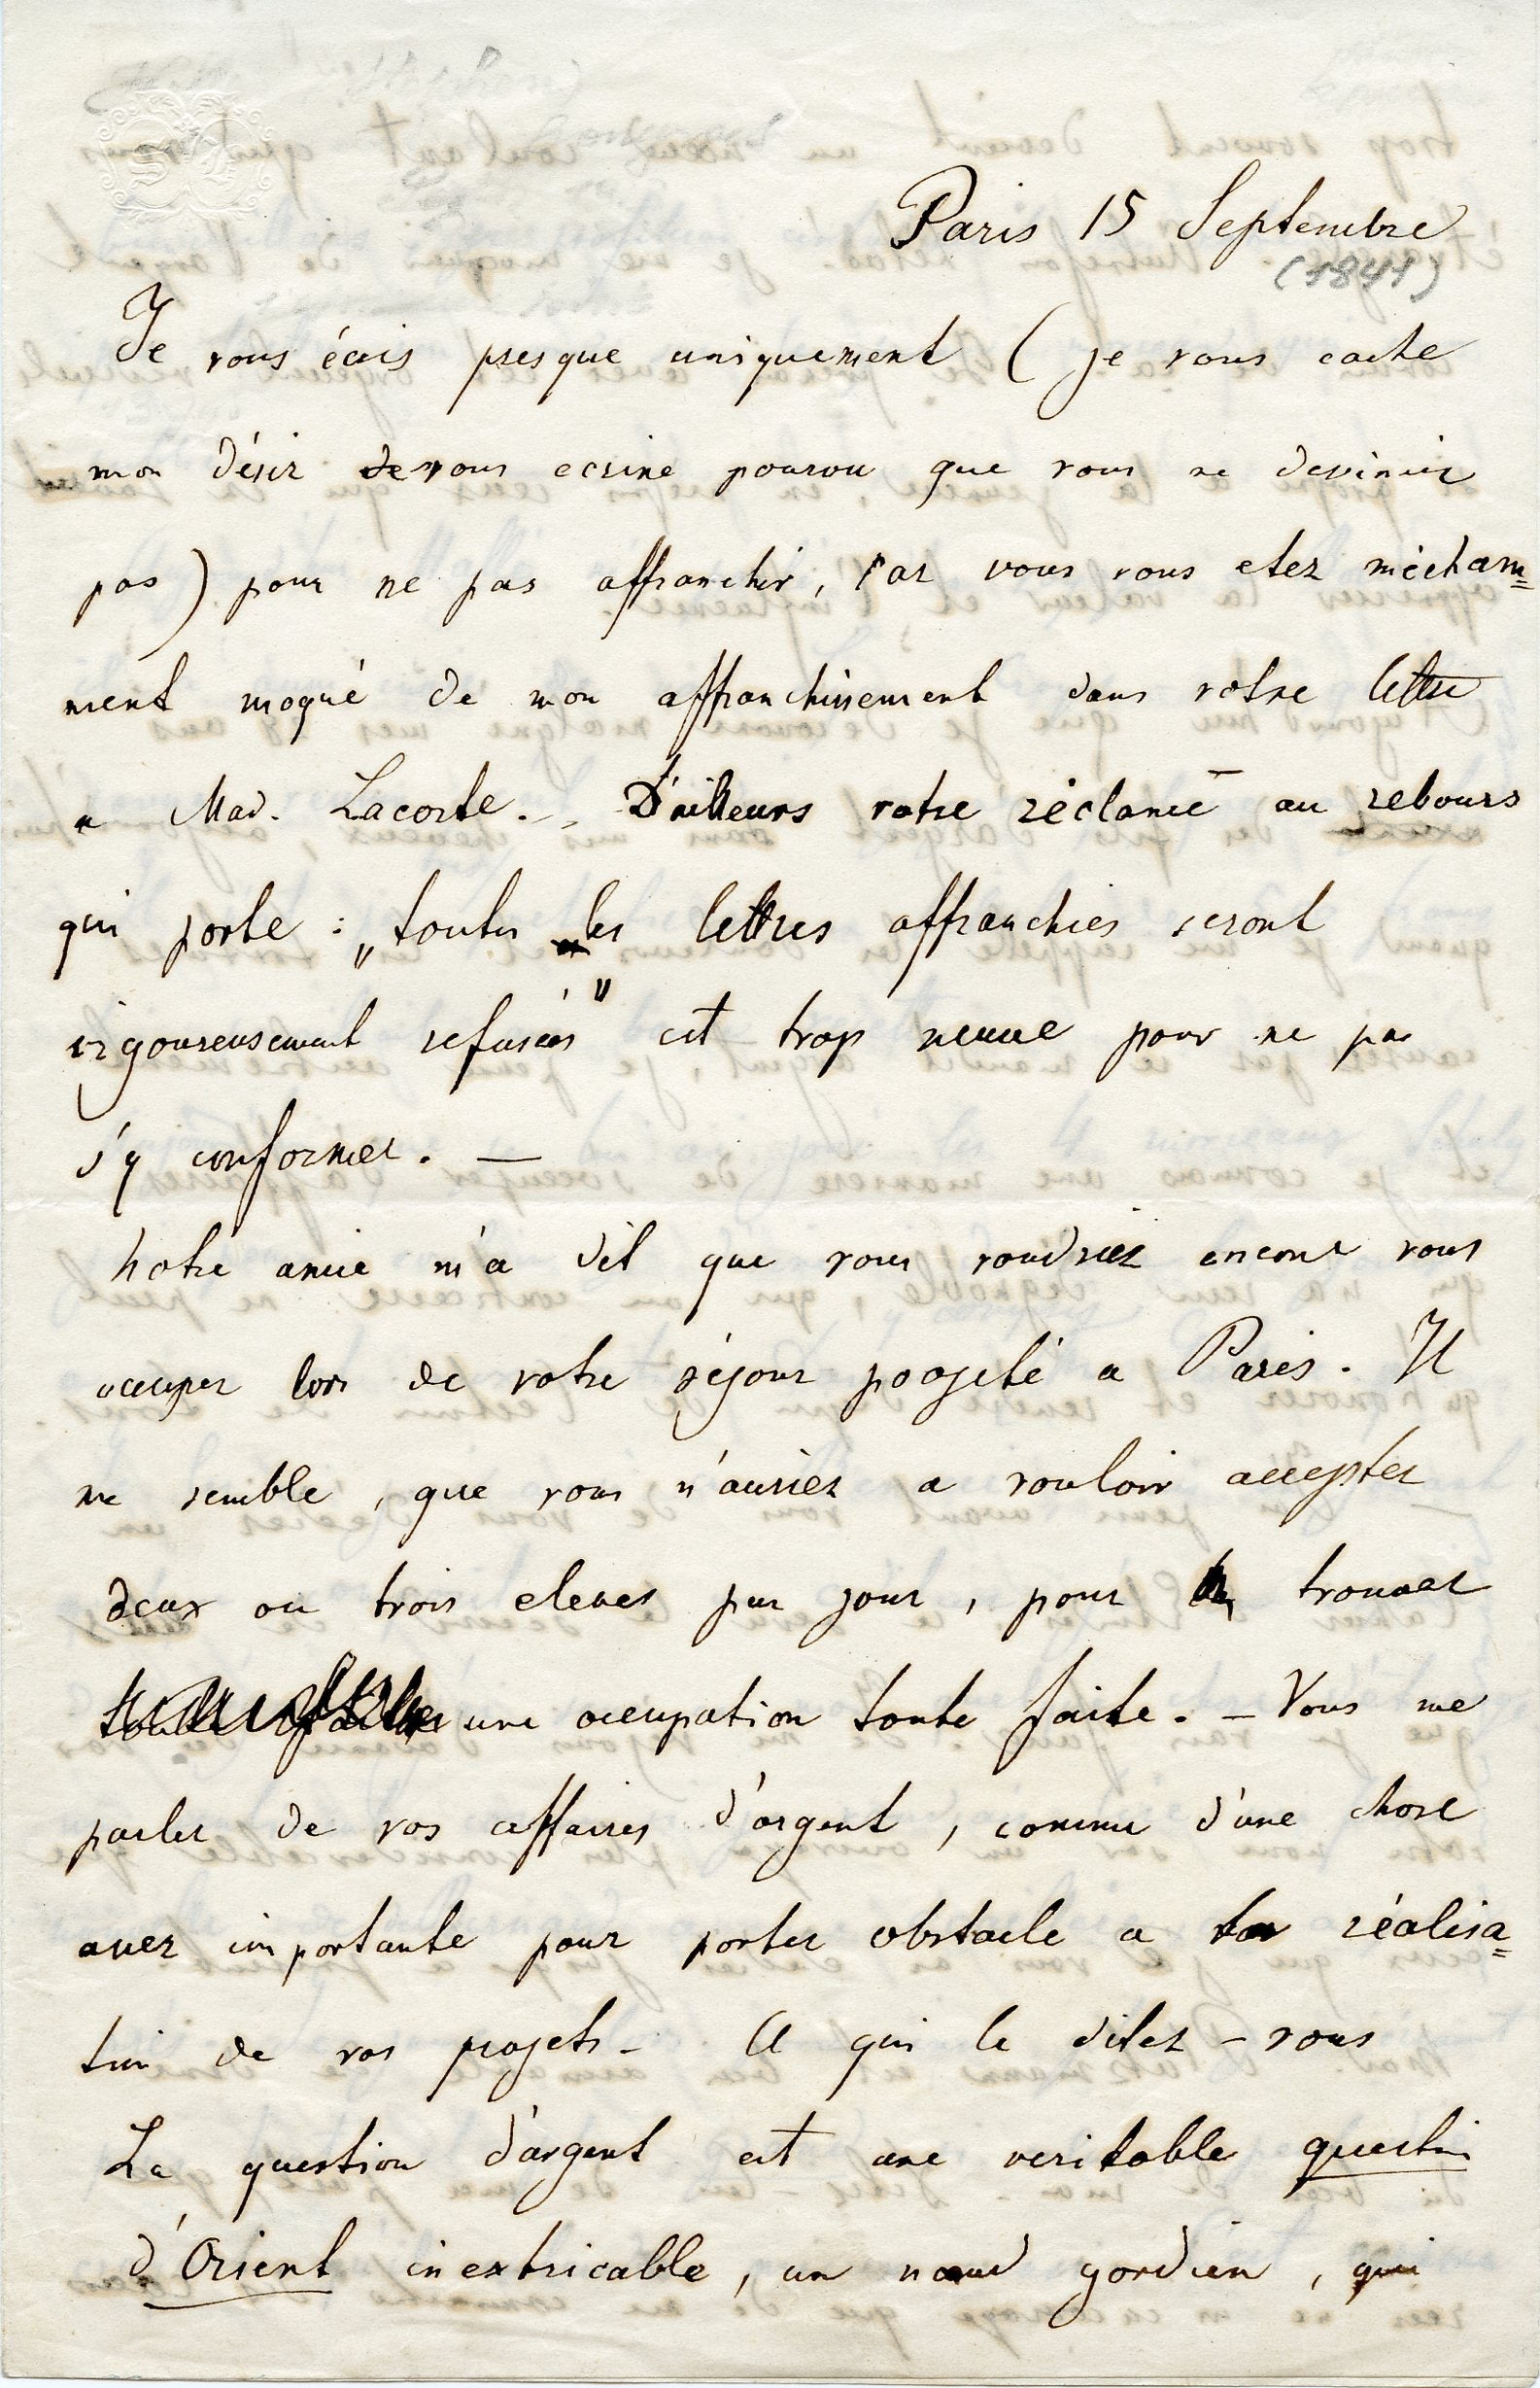 Paris 15 Septembre
(1841)
Je vous écris presque uniquement (je vous cache
mon désir de vous ecrire pourvu que vous ne deviniez
pas) pour ne pas affranchir, car vous vous etez mécham=
ment moqué de mon affranchissement dans votre lettre
a Mad. Lacoste. – D'ailleurs votre réclame au rebours
qui porte : „toutes les lettres affranchies seront
rigoureusement refusées" est trop neuve pour ne pas
s'y conformer. —
Notre amie m'a dit que vous voudriez encore vous
occuper lors de votre séjour projeté a Paris. Il
me semble, que vous n'auriez a vouloir accepter
deux ou trois eleves par jour, pour trouver
une occupation toute faite. – Vous me
parlez de vos affaires d'argent, comme d'une chose
assez importante pour porter obstacle a la réalisa=
tion de vos projets – A qui le dites-vous
La question d'argent est une veritable question
d'Orient inextricable, un nœud gordien, qui